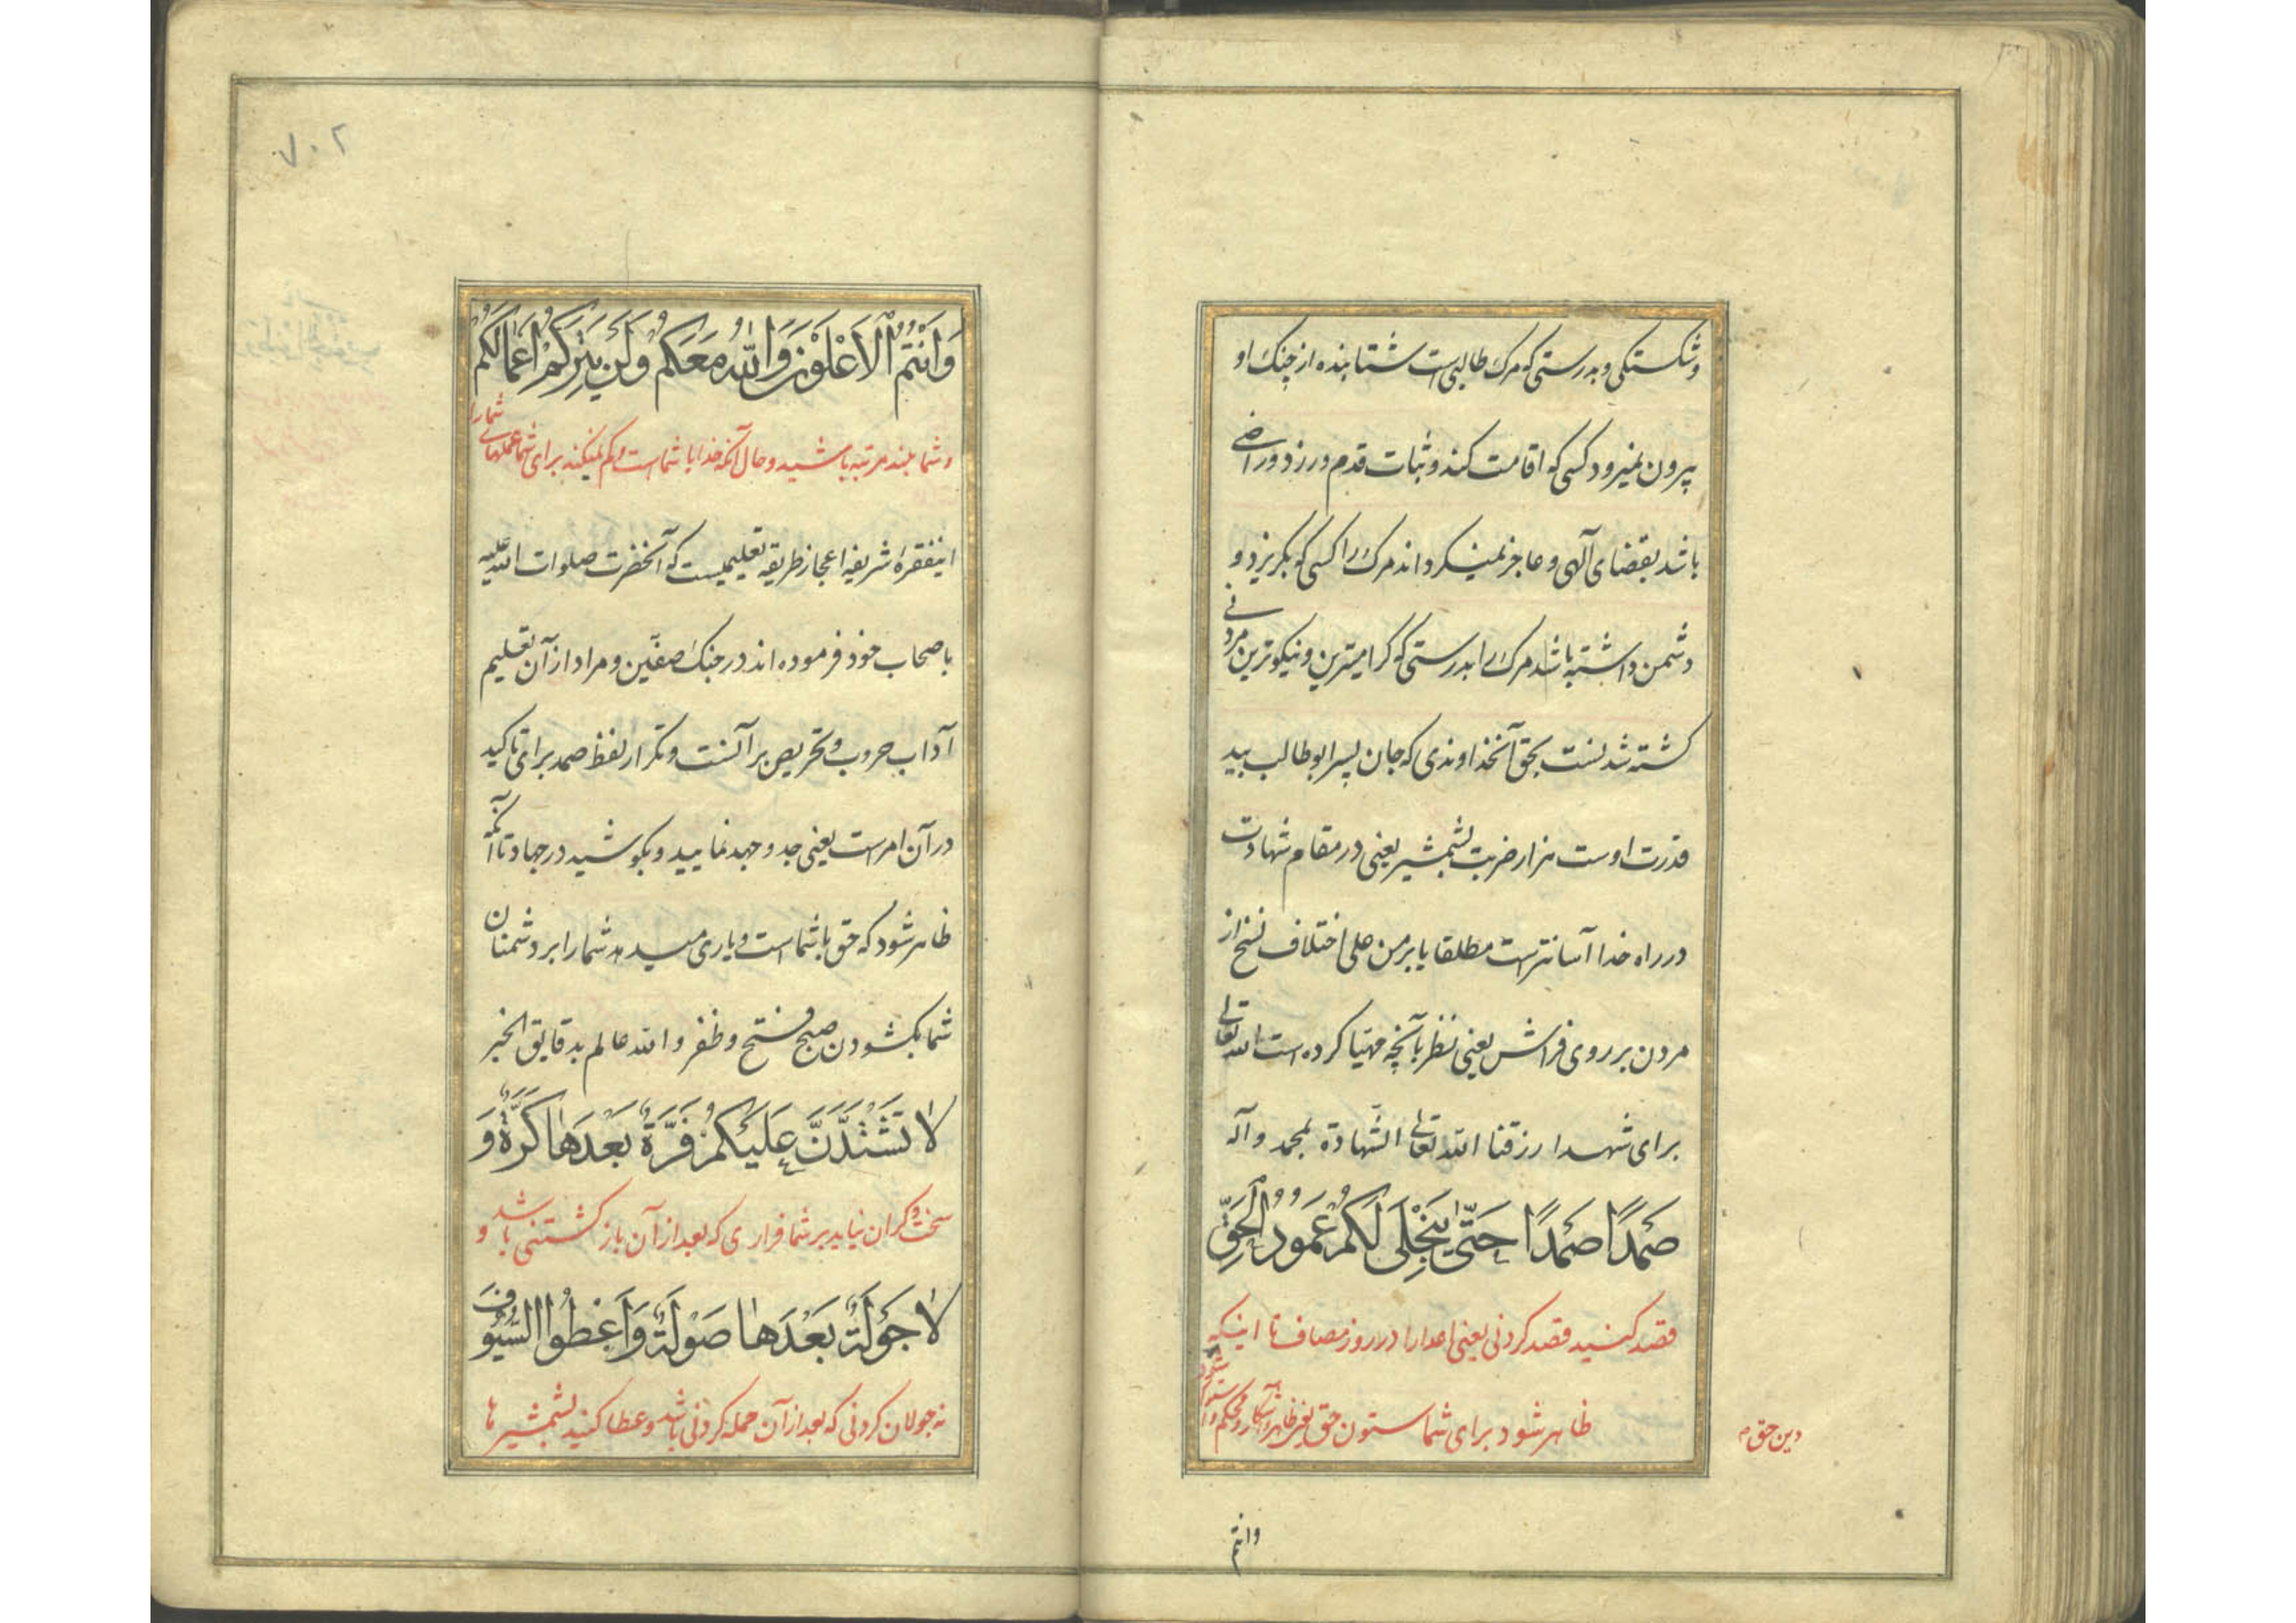 وشکستکی و بدرستی که مرک طالبی است شتابنده از چنک او
بیرون نمیرود کسی که اقامت کند و ثبات قدم ورزد و راضی
باشد بقضای آلهی و عاجز نمیکرداند مرک را کسی که بکریزد و
دشمن داشته باشد مرک را بدرستی که کرامیترین و نیکوترین مردنی
کشته شدنست بحق آنخداوندی که جان پسر ابوطالب بید
قدرت اوست هزار ضربت بشمشیر یعنی در مقام شهادت
در راه خدا آسانتر است مطلقا یا بر من علی اختلاف نسخ از
مردن بر روی فراش یعنی نظر بآنچه مهیّا کرده است الله تعالی
برای شهدا رزقنا الله تعالی الشّهادة بمحمد وآله
صَمْدًا صَمْدًا حَتّىٰ يَنْجَلِيَ لَكُمْ عَمُودُ الْحَقِّ
قصد کنید قصد کردنی یعنی اعدا را در روز مصاف تا اینکه
ظاهر شود برای شما ستون حق یعنی ظاهر و آشکار و محکم و استوار شود
دین حق م
وانتم
٧٠٢
وَاَنْتُمُ الْاَعْلَوْنَ وَاللّٰهُ مَعَكُمْ وَلَنْ يَتِرَكُمْ اَعْمَالَكُمْ
و شما بلند مرتبه باشید و حال آنکه خدا با شماست و کم نمیکند برای شما عملهای شما را
اینفقره شریفه اعجاز طریقه تعلیمیست که آنحضرت صلوات الله علیه
باصحاب خود فرموده اند در جنک صفّین و مراد از آن تعلیم
آداب حروب و تحریص بر آنست و تکرار لفظ صمد برای تاکید
در آن امر است یعنی جد و جهد نمایید و بکوشید در جهاد تا آنکه
ظاهر شود که حق با شماست و یاری میدهد شما را بر دشمنان
شما بکشودن صبح فتح و ظفر و الله عالم بدقایق الخبر
لَا تَشْتَدَّنَّ عَلَيْكُمْ فَرَّةٌ بَعْدَهٰا كَرَّةٌ وَ
سخت و کران نیاید بر شما فراری که بعد از آن باز کشتنی باشد و
لَا جَوْلَةٌ بَعْدَهٰا صَوْلَةٌ وَاَعْطُوا السُّيُوفَ
نه جولان کردنی که بعد از آن حمله کردنی باشد و عطا کنید بشمشیرها